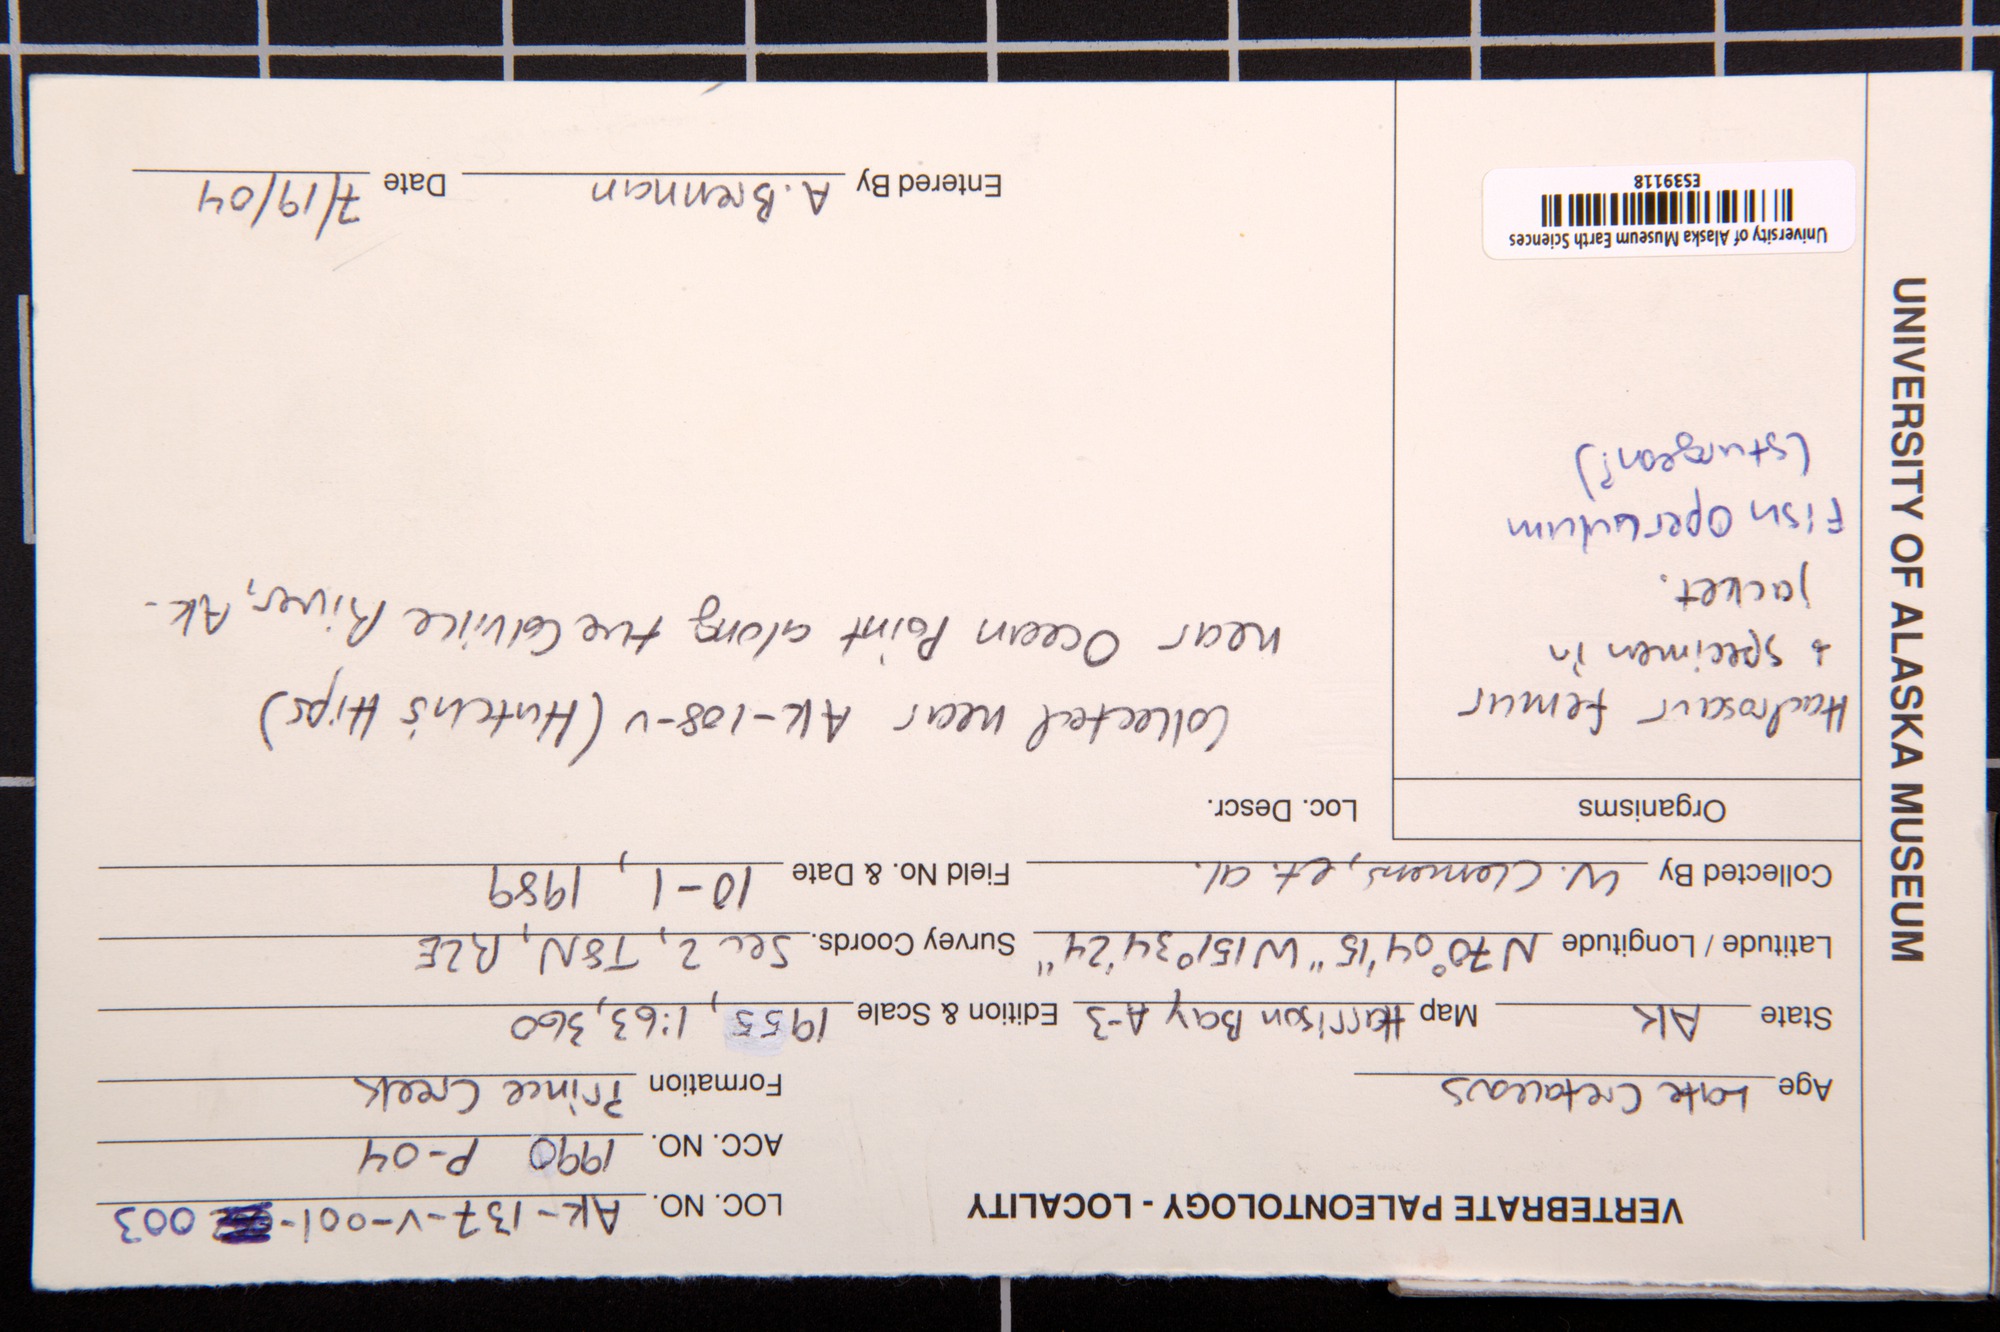 UNIVERSITY OF ALASKA MUSEUM
VERTEBRATE PALEONTOLOGY - LOCALITY
LOC. NO. AK-137-V-001- 003
ACC. NO. 1990 P-04
Age Late Cretaceous Formation Prince Creek
State AK Map Harrison Bay A-3 Edition & Scale 1955, 1:63,360
Latitude / Longitude N70°04'15" W151°34'24" Survey Coords. Sec 2, T8N, R2E
Collected By W. Clemens, et. al. Field No. & Date 10-1, 1989
Organisms
Hadrosaur femur
+ specimen in
jacket.
Fish Operculum
(sturgeon?)
Loc. Descr.
Collected near AK-108-V (Hutch's Hips)
near Ocean Point along the Colville River, AK.
University of Alaska Museum Earth Sciences
ES39118
Entered By A. Brennan Date 7/19/04